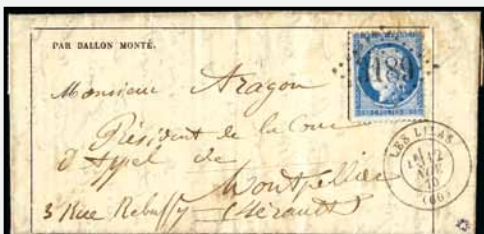 PAR BALLON MONTÉ.
189
Monsieur Aragon
Président de la Cour
d'Appel de
Montpellier
3 Rue Rebuffy (Hérault)
LES LILAS
12
NOV
70
(60)